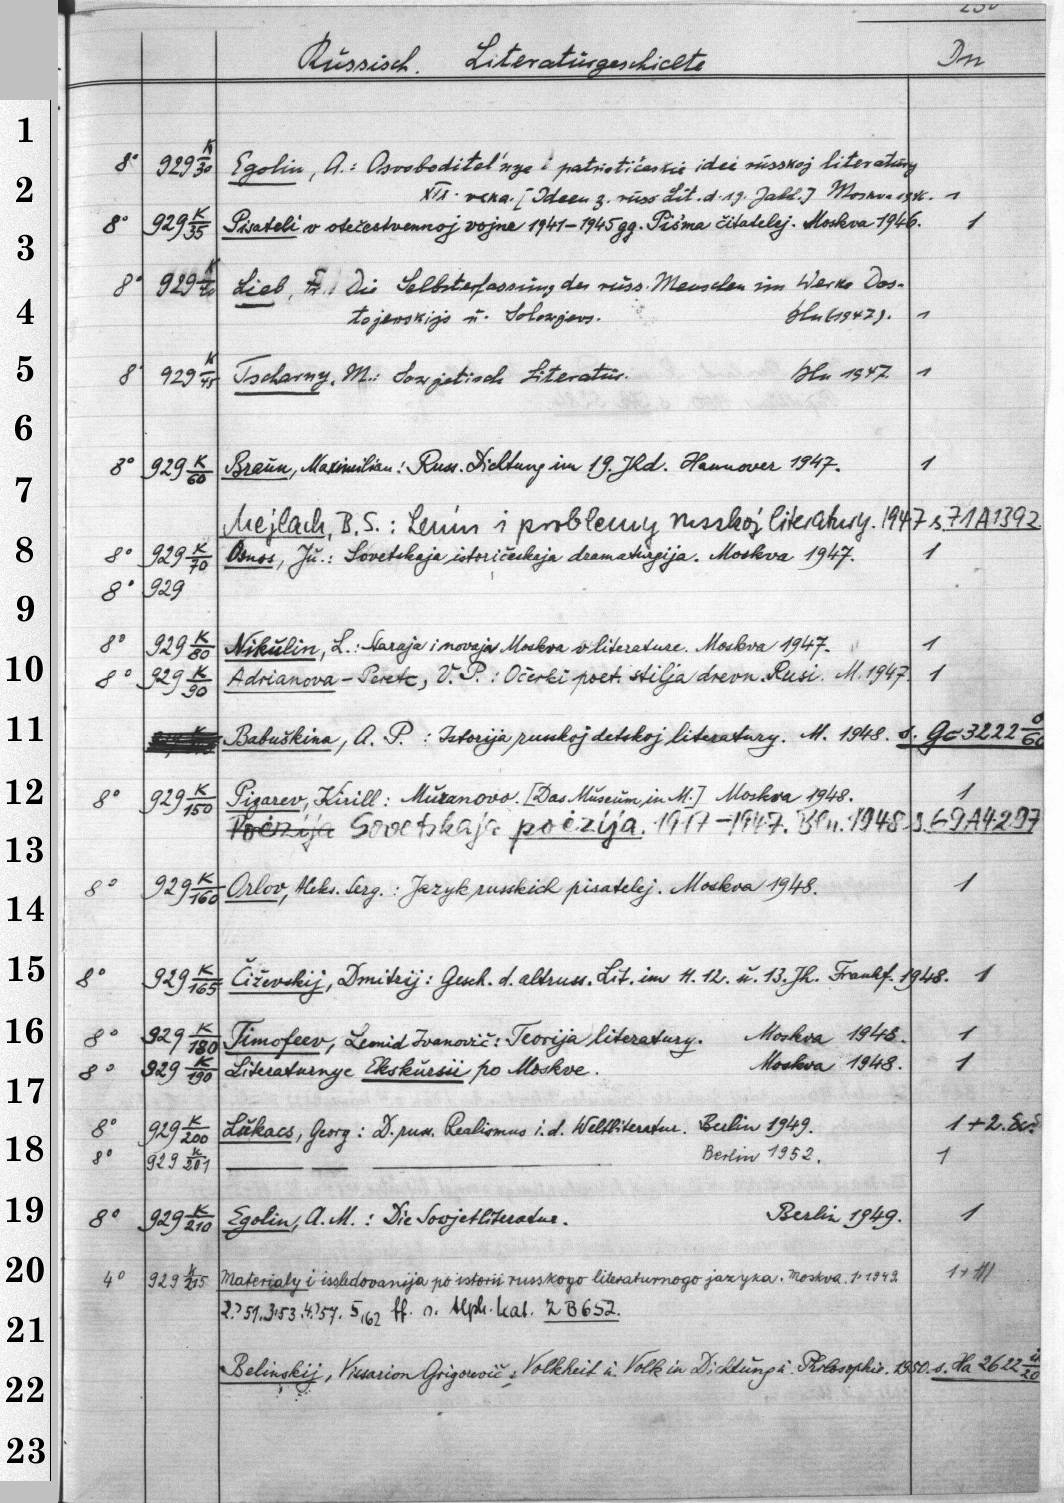 Russisch. Literaturgeschichte Dn
1
8° 929 K/30 Egolin, A.: Osvoboditel'nye i patriotičeskie idei russkoj literatury
2
XIX. veka. [Ideen z. russ Lit. d. 19. Jahd.] Moskva 1
8° 929 K/35 Pisateli v otečestvennoj vojne 1941-1945 gg. Piśma čitatelej. Moskva 1946. 1
3
8° 929 K/40 Lieb, Fr.: Die Selbsterfassung des russ. Menschen im Werke Dos-
4
tojevskijs u. Solovjevs. Bln (1947). 1
5
8° 929 K/45 Tscharny, M.: Sowjetisch Literatur. Bln 1947 1
6
8° 929 K/60 Braun, Maximilian: Russ. Dichtung im 19. Jhd. Hannover 1947. 1
7
Mejlach, B.S.: Lenin i problemy russkoj literatury. 1947 s. 71A1392
8
8° 929 K/70 Osnos, Ju.: Sovetskaja istoričeskaja dramaturgija. Moskva 1947. 1
8° 929
9
8° 929 K/80 Nikulin, L.: Staraja i novaja Moskva v literature. Moskva 1947. 1
10
8° 929 K/90 Adrianova-Peretc, V. P.: Očerki poet. stilja drevn. Rusi. M. 1947. 1
11
Babuškina, A. P. : Istorija russkoj detskoj literatury. M. 1948. s. Gc 3222 o/60
12
8° 929 K/150 Pigarev, Kirill: Muranovo. [Das Museum in M.] Moskva 1948. 1
Poėzija Sovetskaja poėzija. 1917-1947. Bln. 1948 s. 69A4297
13
8° 929 K/160 Orlov, Aleks. Serg.: Jazyk russkich pisatelej. Moskva 1948. 1
14
15
8° 929 K/165 Čiževskij, Dmitrij: Gesch. d. altruss. Lit. im 11. 12. u. 13. Jh. Frankf. 1948. 1
16
8° 929 K/180 Timofeev, Leonid Ivanovič: Teorija literatury. Moskva 1948. 1
8° 929 K/190 Literaturnye Ekskursii po Moskve. Moskva 1948. 1
17
8° 929 K/200 Lukacs, Georg: D. russ. Realismus i. d. Weltliteratur. Berlin 1949. 1+2.
18
8° 929 K/201 — — — Berlin 1952. 1
19
8° 929 K/210 Egolin, A. M.: Die Sowjetliteratur. Berlin 1949. 1
20
4° 929 K/215 Materialy i issledovanija po istorii russkogo literaturnogo jazyka. Moskva. 1.1949.
2.51. 3.53. 4.57. 5.62 ff. s. Alph. Kat. Z B 652.
21
Belinskij, Vissarion Grigorevič: Volkheit u. Volk in Dichtung u. Philosophie. 1950. s. Ha 2622 i/20
22
23